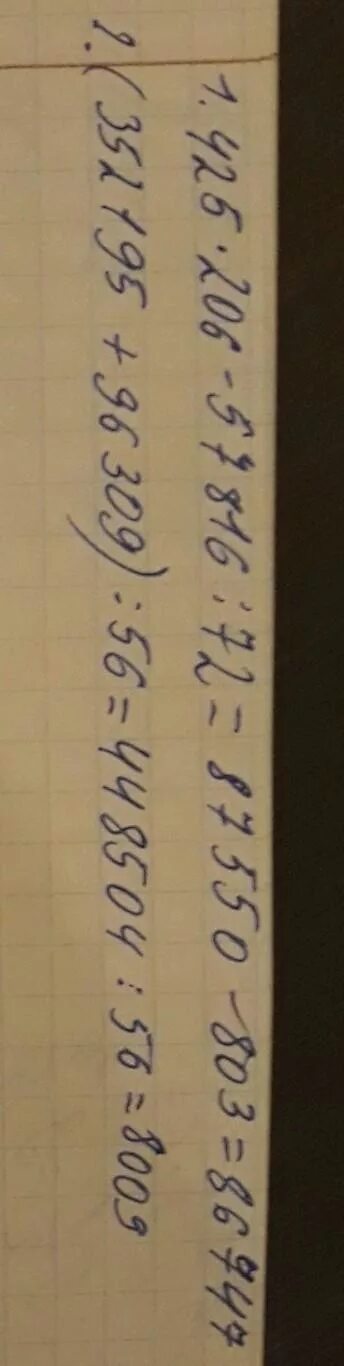 1. 425 · 206 - 57816 : 72 = 87550 - 803 = 86747
2. (352195 + 96309) : 56 = 448504 : 56 = 8009